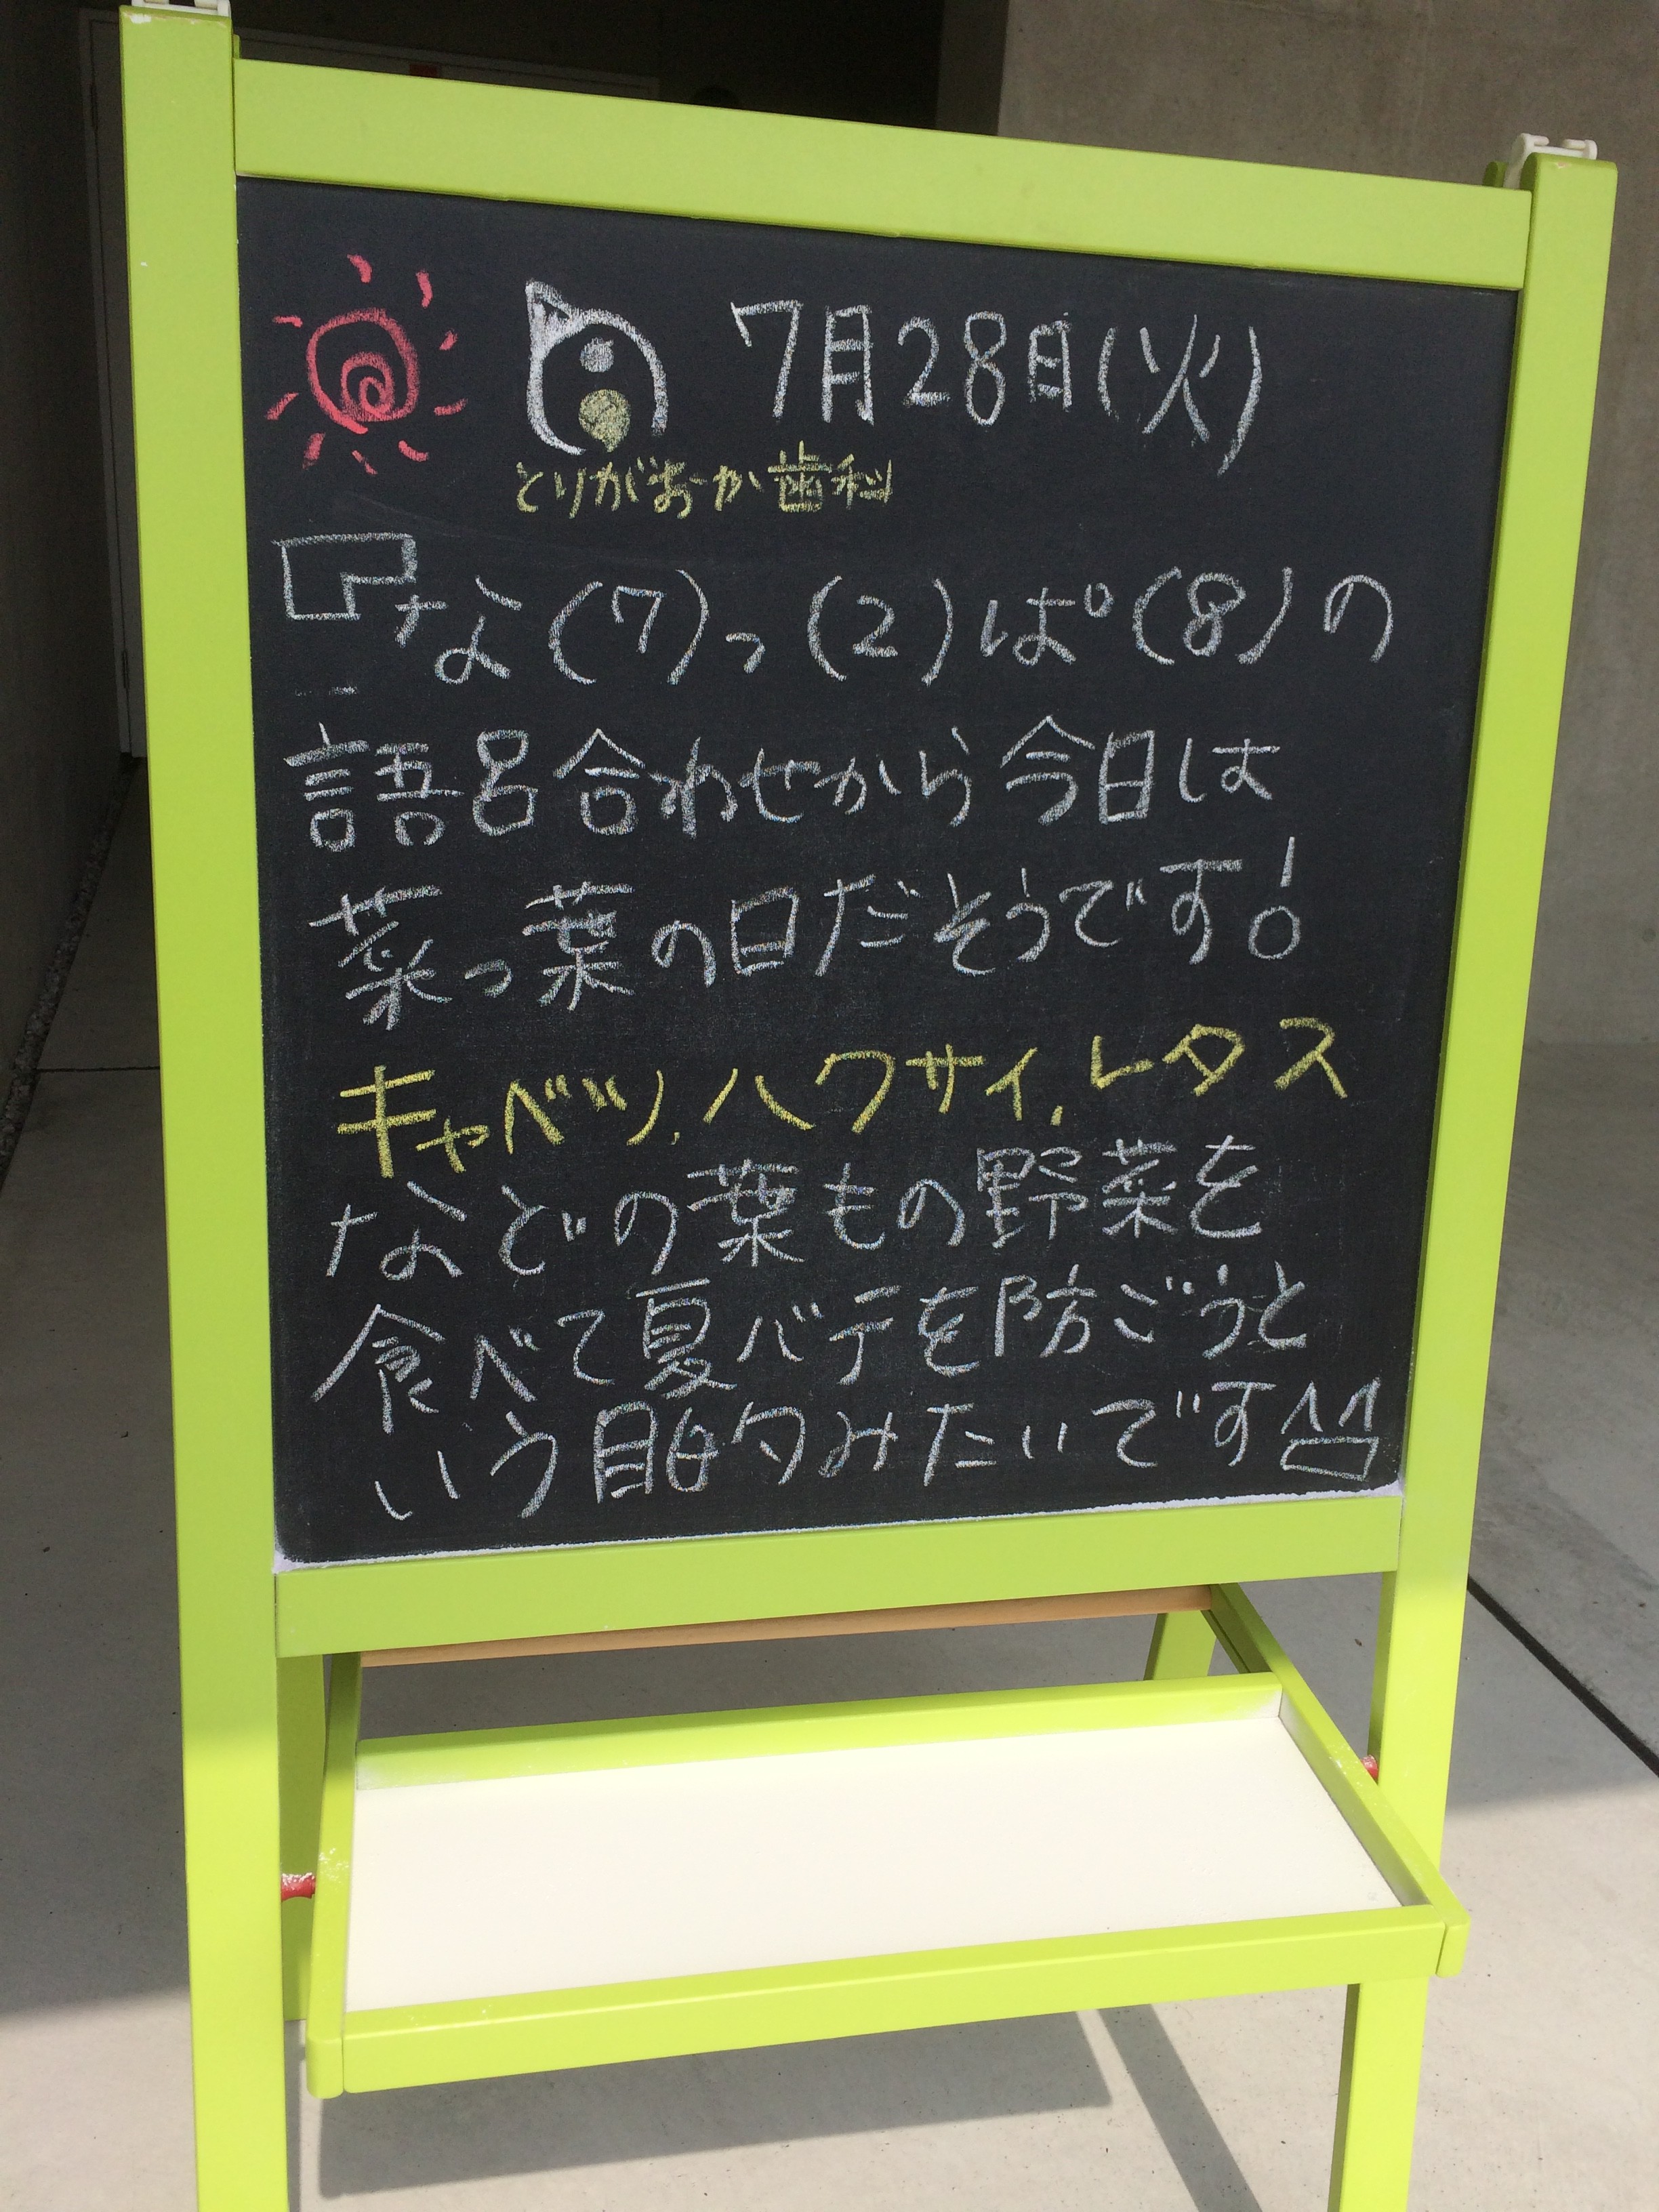 7月28日(火)
とりがおか歯科
『な(7)っ(2)ぱ(8)の
語呂合わせから今日は
菜っ葉の日だそうです!
キャベツ,ハクサイ,レタス
などの葉もの野菜を
食べて夏バテを防ごうと
いう目的みたいです